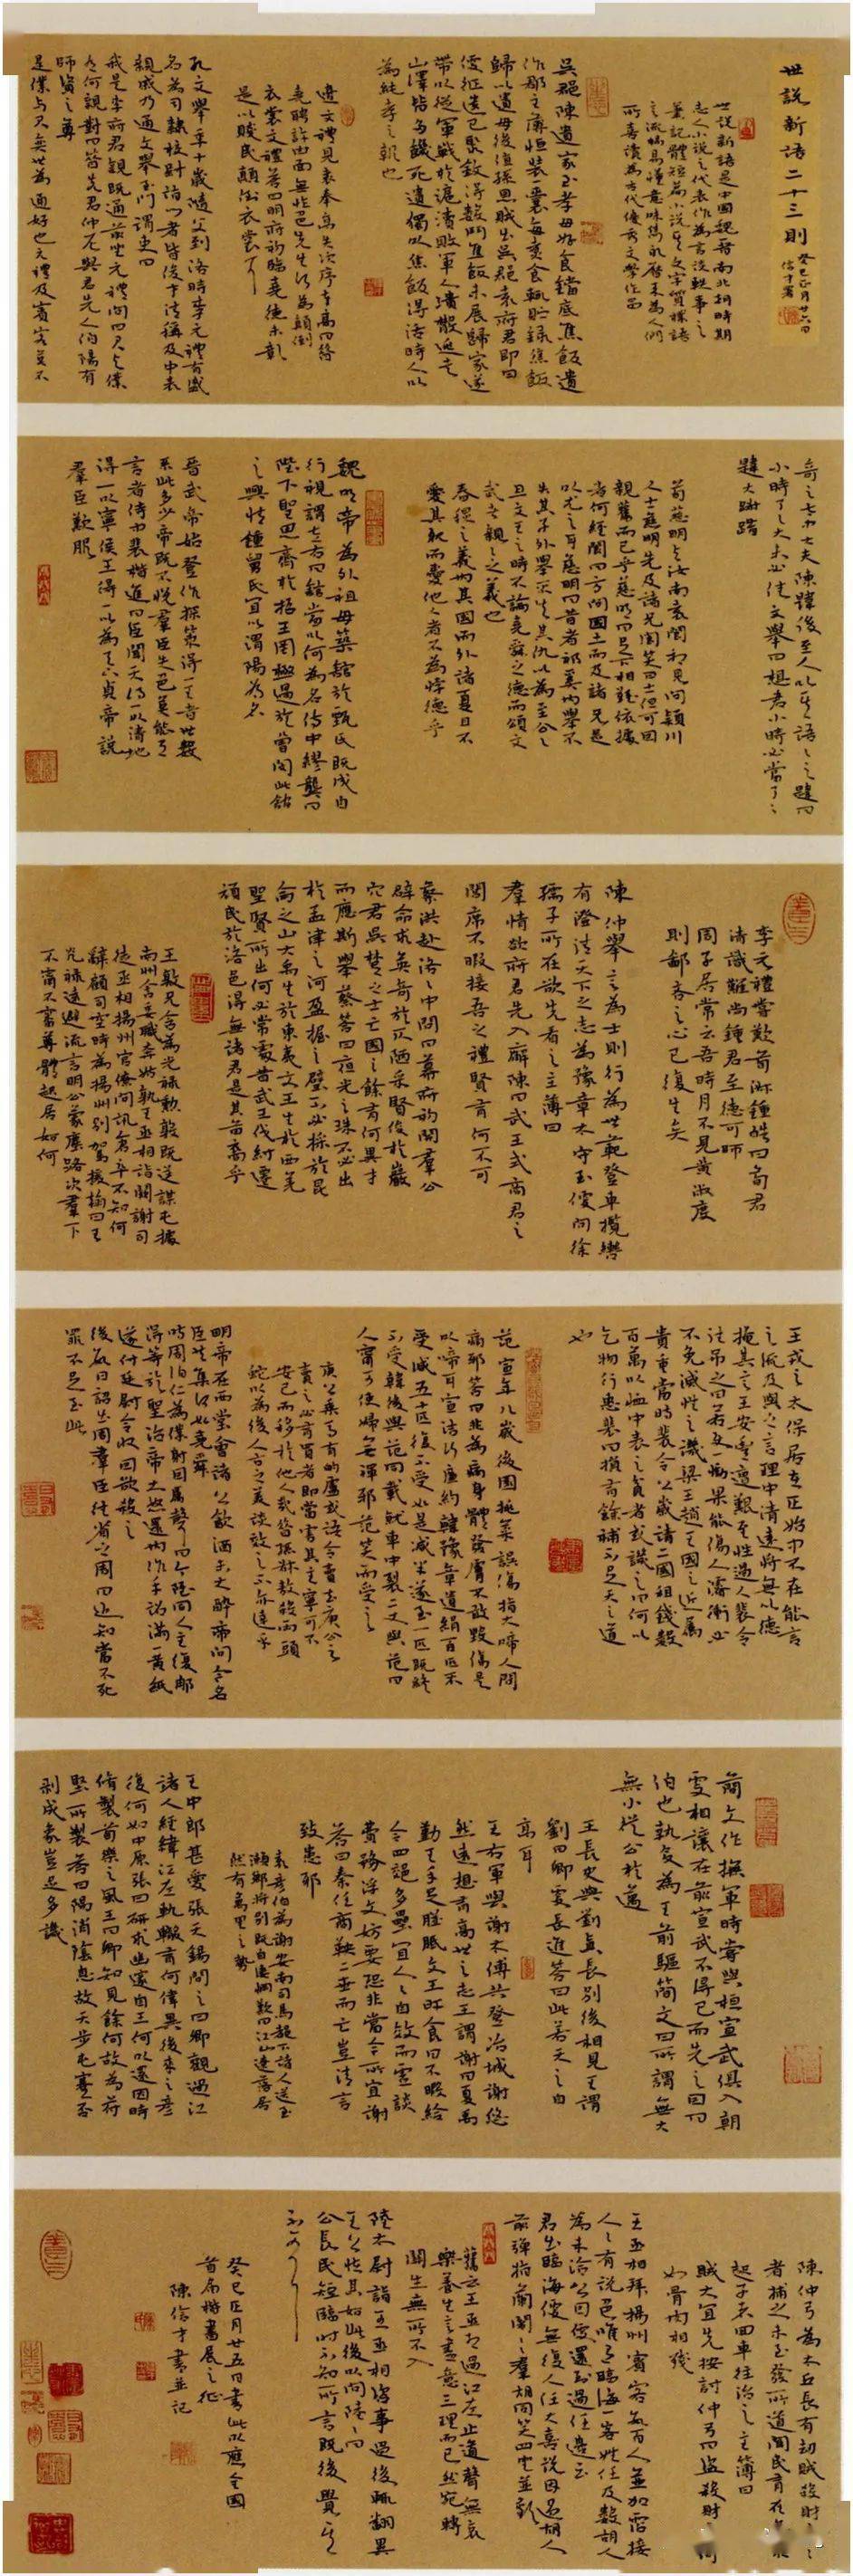 世說新語二十三則
癸巳正月廿六日
信才署
世說新語是中國魏晉南北朝時期
志人小說之代表作為言談軼事之
筆記體短篇小說其文字質樸語
之流暢易懂意味雋永歷來為人們
所喜讀為古代優秀文學作品
吳郡陳遺家至孝母好食鐺底焦飯遺
作郡主薄恒裝囊每煮食輒貯錄焦飯
歸以遺母後值孫恩賊出吳郡袁府君即日
便征遺已聚斂得數斗焦飯未展歸家遂
帶以從軍戰於滬瀆敗軍人潰散逃走
山澤皆多饑死遺獨以焦飯得活時人以
為純孝之報也
邊文禮見袁奉高失次序奉高曰昔
堯聘許由面無怍色先生何為顛倒
衣裳文禮答曰明府初臨堯德未彰
是以賤民顛倒衣裳耳
孔文舉年十歲隨父到洛時李元禮有盛
名為司隸校尉詣門者皆俊才清稱及中表
親戚乃通文舉至門謂吏曰
我是李府君親既通前坐元禮問曰君與僕
有何親對曰昔先君仲尼與君先人伯陽有
師資之尊
是僕與君奕世為通好也元禮及賓客莫不
奇之太中大夫陳韙後至人以其語語之韙曰
小時了了大未必佳文舉曰想君小時必當了了
韙大踧踖
荀慈明與汝南袁閬相見問潁川
人士慈明先及諸兄閬笑曰士但可因
親舊而已乎慈明曰足下相難依據
者何經閬曰方問國士而及諸兄是
以尤之耳慈明曰昔者祁奚內舉不
失其子外舉不失其仇以為至公公
旦文王之詩不論堯舜之德而頌文
武者親親之義也
春秋之義內其國而外諸夏且不
愛其親而愛他人者不為悖德乎
魏明帝為外祖母築館於甄氏既成自
行視謂左右曰館當以何為名侍中繆襲曰
陛下聖思齊於哲王罔極過於曾閔此館
之興情鍾舅氏宜以渭陽為名
晉武帝始登阼探策得一王者世數
系此多少帝既不悅羣臣失色莫能有
言者侍中裴楷進曰臣聞天得一以清地
得一以寧侯王得一以為天下貞帝說
羣臣歎服
李元禮嘗歎荀淑鍾皓曰荀君
清識難尚鍾君至德可師
周子居常云吾時月不見黃叔度
則鄙吝之心已復生矣
陳仲舉言為士則行為世範登車攬轡
有澄清天下之志為豫章太守至便問徐
孺子所在欲先看之主薄曰
羣情欲府君先入廨陳曰武王式商君之
閭席不暇煖吾之禮賢有何不可
蔡洪赴洛洛中問曰幕府初開羣公
辟命求英奇於仄陋采賢俊於巖
穴君吳楚之士亡國之餘有何異才
而應斯舉蔡答曰夜光之珠不必出
於孟津之河盈握之璧不必採於昆
侖之山大禹生於東夷文王生於西羌
聖賢所出何必常處昔武王伐紂遷
頑民於洛邑得無諸君是其苗裔乎
王敦兄含為光祿勳敦既逆謀屯據
南州含委職奔姑孰王丞相詣闕謝司
徒丞相揚州官僚問訊倉卒不知何
辭顧司空時為揚州別駕援翰曰王
光祿遠避流言明公蒙塵路次羣下
不寧不審尊體起居如何
王戎云太保居在正始中不在能言
之流及與之言理中清遠將無以德
掩其言王安豐遭艱至性過人裴令
往吊之曰若使一慟果能傷人濬沖必
不免滅性之譏梁王趙王國之近屬
貴重當時裴令公歲請二國租錢數
百萬以恤中表之貧者或譏之曰何以
乞物行惠裴曰損有餘補不足天之道
也
范宣年八歲後園挑菜誤傷指大啼人問
痛邪答曰非為痛身體髮膚不敢毀傷是
以啼耳宣潔行廉約韓豫章遺絹百匹不
受減五十匹復不受如是減半遂至一匹既終
不受韓後與范同載就車中裂二丈與范曰
人寧可使婦無褌邪范笑而受之
庾公乘馬有的盧或語令賣去庾公云
賣之必有買者即當害其主寧可不
安己而移於他人哉昔孫叔敖殺兩頭
蛇以為後人古之美談效之不亦達乎
明帝在西堂會諸公飲酒未大醉帝問今名
臣共集何如堯舜
時周伯仁為僕射因厲聲曰今雖同人主復那
得等於聖治帝大怒還內作手詔滿黃紙
遂付廷尉令收因欲殺之
後數日詔出周羣臣往省之周曰近知當不死
罪不足至此
簡文作撫軍時嘗與桓宣武俱入朝
更相讓在前宣武不得已而先之因曰
伯也執殳為王前驅簡文曰所謂無大
無小從公於邁
王長史與劉真長別後相見王謂
劉曰卿更長進答曰此若天之自
高耳
王右軍與謝太傅共登冶城謝悠
然遠想有高世之志王謂謝曰夏禹
勤王手足胼胝文王旰食日不暇給
今四郊多壘宜人人自效而虛談
費務浮文妨要恐非當今所宜謝
答曰秦任商鞅二世而亡豈清言
致患邪
袁彥伯為謝安南司馬都下諸人送至
瀨鄉將別既自悽惘歎曰江山遼落居
然有萬里之勢
王中郎甚愛張天錫問之曰卿觀過江
諸人經緯江左軌轍有何偉異後來之彥
復何如中原張曰研求幽邃自王何以還因時
脩製荀樂之風王曰卿知見有餘何故為苻
堅所製答曰陽消陰息故天步屯蹇否
剝成象豈足多譏
陳仲弓為太丘長有劫賊殺財主主
者捕之未至發所道聞民有在草
起子者回車往治之主簿曰
賊大宜先按討仲弓曰盜殺財主何
如骨肉相殘
王丞相拜揚州賓客數百人並加霑接
人人有說色唯有臨海一客姓任及數胡人
為未洽公因便還到過任邊云
君出臨海便無復人任大喜說因過胡人
前彈指蘭闍蘭闍羣胡同笑四坐並歡
舊云王丞相過江左止道聲無哀
樂養生言盡意三理而已然宛轉
關生無所不入
陸太尉詣王丞相諮事過後輒翻異
王公怪其如此後以問陸陸曰
公長民短臨時不知所言既後覺其
不可耳
癸巳正月廿五日書此以應全國
首屆楷書展之征
陳信才書並記